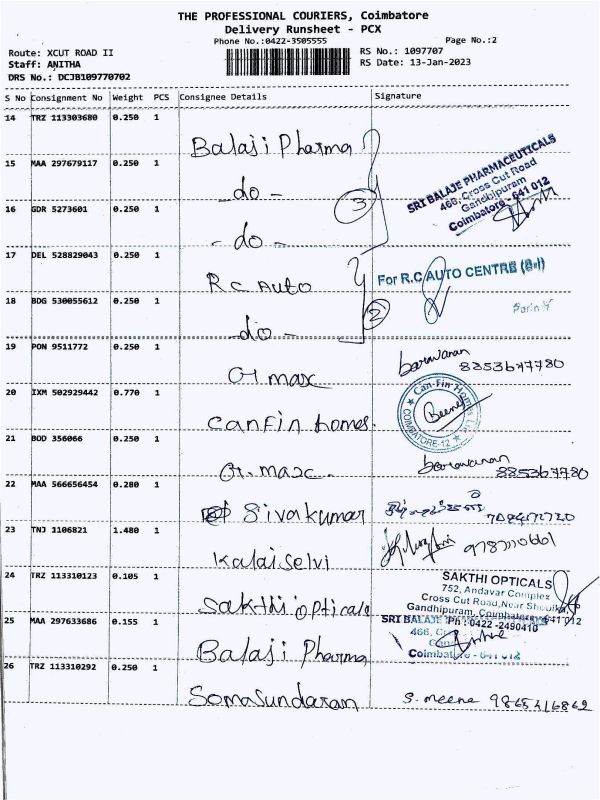 THE PROFESSIONAL COURIERS, Coimbatore
Delivery Runsheet - PCX
Phone No.:0422-3505555
Page No.:2
Route: XCUT ROAD II
RS No.: 1097707
Staff: ANITHA
RS Date: 13-Jan-2023
DRS No.: DCJB109770702
S No Consignment No Weight PCS Consignee Details Signature
14 TRZ 113303680 0.250 1
Balaji Pharma
15 MAA 297679117 0.250 1
- do -
3
SRI BALAJE PHARMACEUTICALS
466, Cross Cut Road
Gandhipuram
Coimbatore - 641 012
16 GDR 5273601 0.250 1
- do -
17 DEL 528829043 0.250 1
Rc Auto
For R.C.AUTO CENTRE
18 BDG 530055612 0.250 1
- do -
2
19 PON 9511772 0.250 1
20 IXM 502929442 0.770 1
canfin homes.
Can-Fin Homes Ltd
COIMBATORE-12
21 BOD 356066 0.250 1
22 MAA 566656454 0.280 1
Sivakumar
23 TNJ 1106821 1.480 1
Kalaiselvi
24 TRZ 113310123 0.105 1
Sakthi opticals
SAKTHI OPTICALS
752, Andavar Complex
Cross Cut Road,Near
Gandhipuram, Coimbatore-641 012
Ph : 0422 -2490410
25 MAA 297633686 0.155 1
Balaji Pharma
SRI BALAJE
466,
Coimbatore - 641 012
26 TRZ 113310292 0.250 1
Somasundaran
S. meena